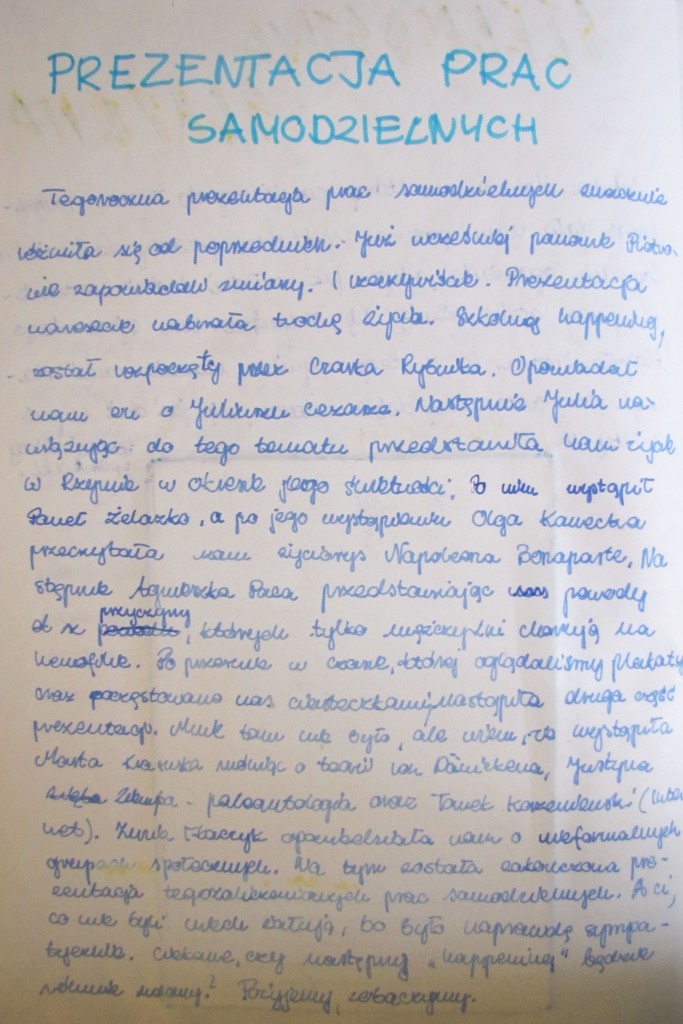 PREZENTACJA PRAC
SAMODZIELNYCH
Tegoroczna prezentacja prac samodzielnych znacznie
różniła się od poprzednich. Już wcześniej panowie Piotro-
wie zapowiadali zmiany. I rzeczywiście. Prezentacja
nareszcie nabrała trochę życia. Szkolny happening,
został rozpoczęty przez Czarka Rybutka. Opowiadał
nam on o Juliuszu Cezarze. Następnie Julia na-
wiązując do tego tematu przedstawiła nam życie
w Rzymie w okresie jego świetności. Po niej wystąpił
Paweł Żelazko, a po jego wystąpieniu Olga Kawecka
przeczytała nam życiorys Napoleona Bonaparte. Na
stępnie Agnieszka przedstawiając powody
przyczyny
, których tylko mężczyźni chorują na
hemofilię. Po przerwie w czasie, której oglądaliśmy plakaty
oraz poczęstowano nas ciasteczkami, nastąpiła druga część
prezentacji. Mnie tam nie było, ale wiem, że wystąpiła
Marta mówiąc o teorii von Dänikena, Justyna
- paleontologia oraz Tomek (Inter
net). Zuzia opowiedziała nam o nieformalnych
grupach społecznych. Na tym została zakończona pre-
zentacja prac samodzielnych. A ci,
co nie byli niech żałują, bo było naprawdę sympa-
tycznie. Ciekawe, czy następny „happening" będzie
równie udany? Pożyjemy, zobaczymy.